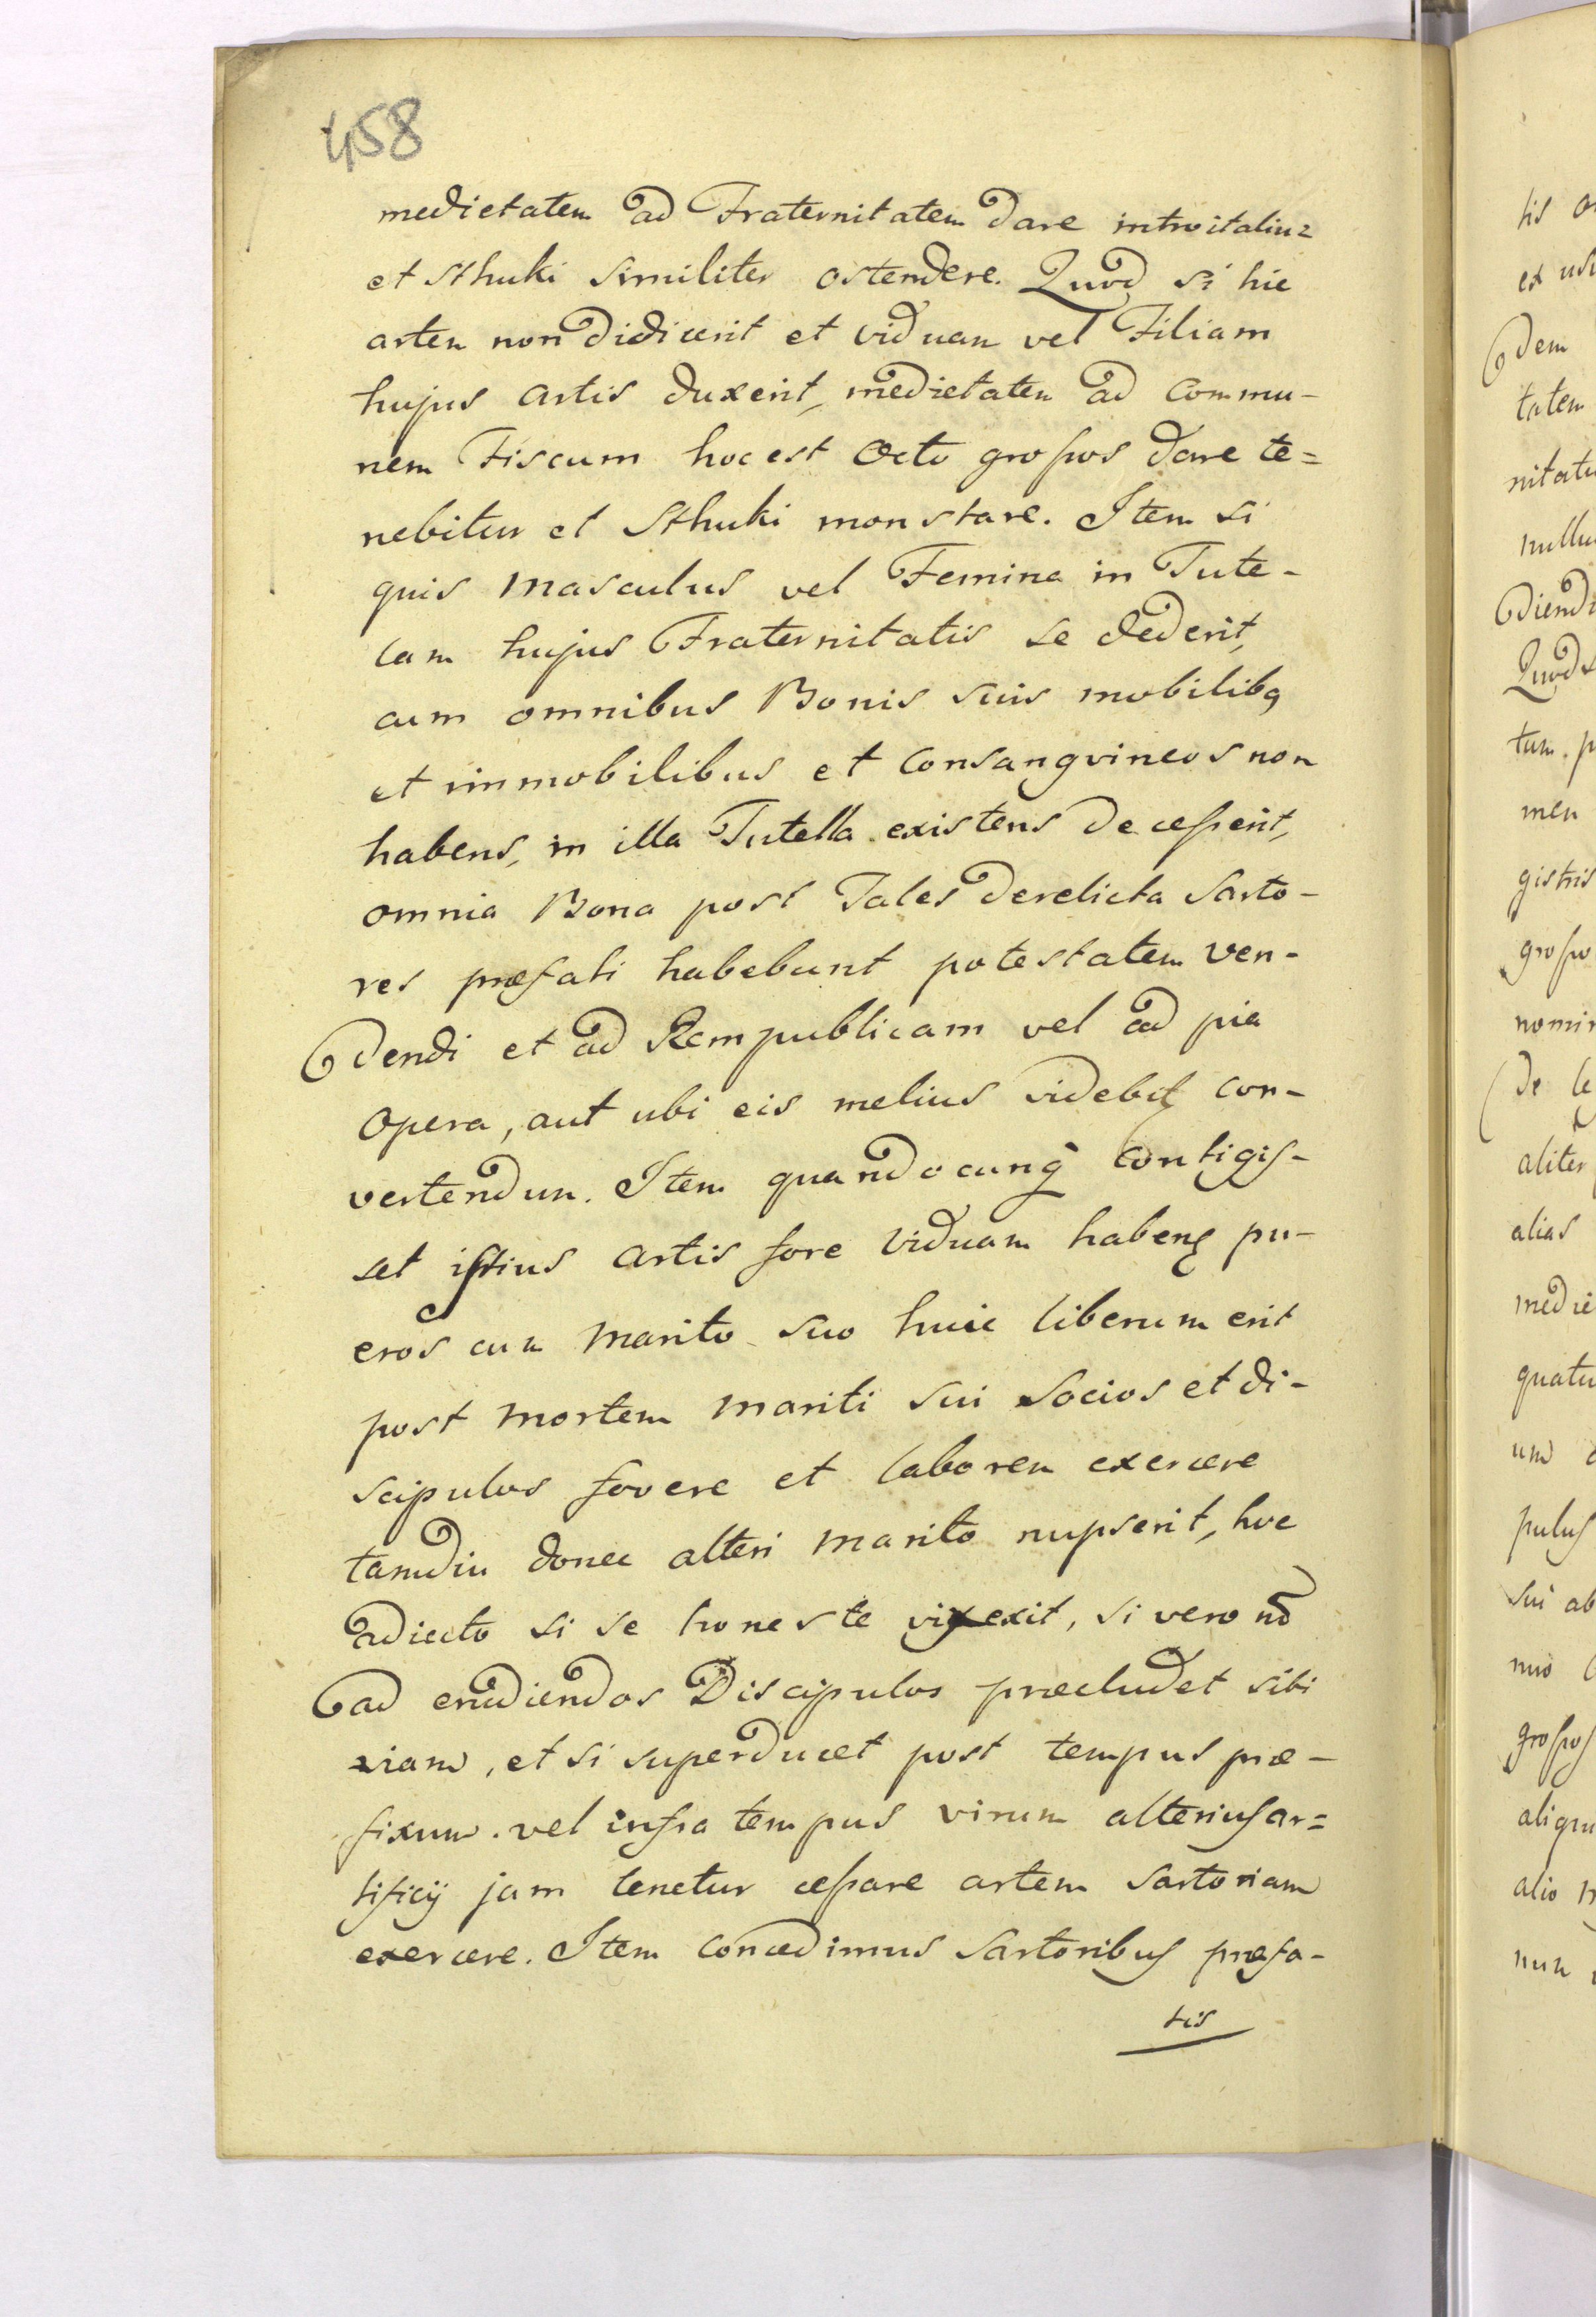 458
medietatem ad Fraternitatem dare introitalium
et Sthuki similiter ostendere. Quod si hic
artem non didicerit et viduam vel Filiam
hujus artis duxerit, medietatem ad commu-
nem Fiscum hoc est Octo grossos dare te=
nebitur et Sthuki monstrare. Item si
quis Masculus vel Femina in Tute-
lam hujus Fraternitatis se dederit,
cum omnibus Bonis suis mobilibq
et immobilibus et Consangvineos non
habens, in illa Tutella existens decesserit,
omnia Bona post Tales derelicta Sarto-
res præfati habebunt potestatem ven-
dendi et ad Rempublicam vel ad pia
Opera, aut ubi eis melius videbit con-
vertendum. Item quandocunq contigis-
set istius artis fore viduam habens pu-
eros cum Marito suo huic liberum erit
post Mortem Mariti sui Socios et di-
scipulos fovere et laborem exercere
tamdiu donec alteri Marito nupserit, hoc
adiecto si se honeste vixexit, si vero nō
ad erudiendos Discipulos præcludet sibi
viam, et si superducet post tempus præ-
fixum. vel infra tempus virum alterius ar=
tificij jam tenetur cessare artem Sartoriam
exercere. Item concedimus Sartoribus præfa-
tis